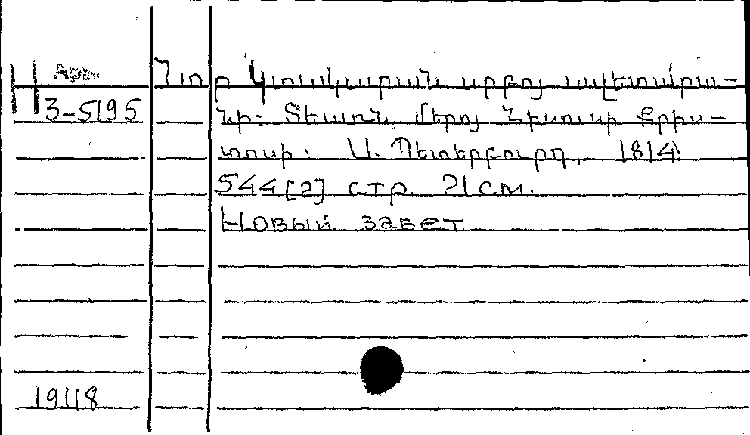 Арм.
Н
3-5195
Նոր Կտակարան սրբոյ աւետարա-
նի: Տեառն մերոյ Յիսուսի Քրիս-
տոսի. Ս. Պետերբուրգ, 1814:
544[2] стр. 21 см.
Новый завет